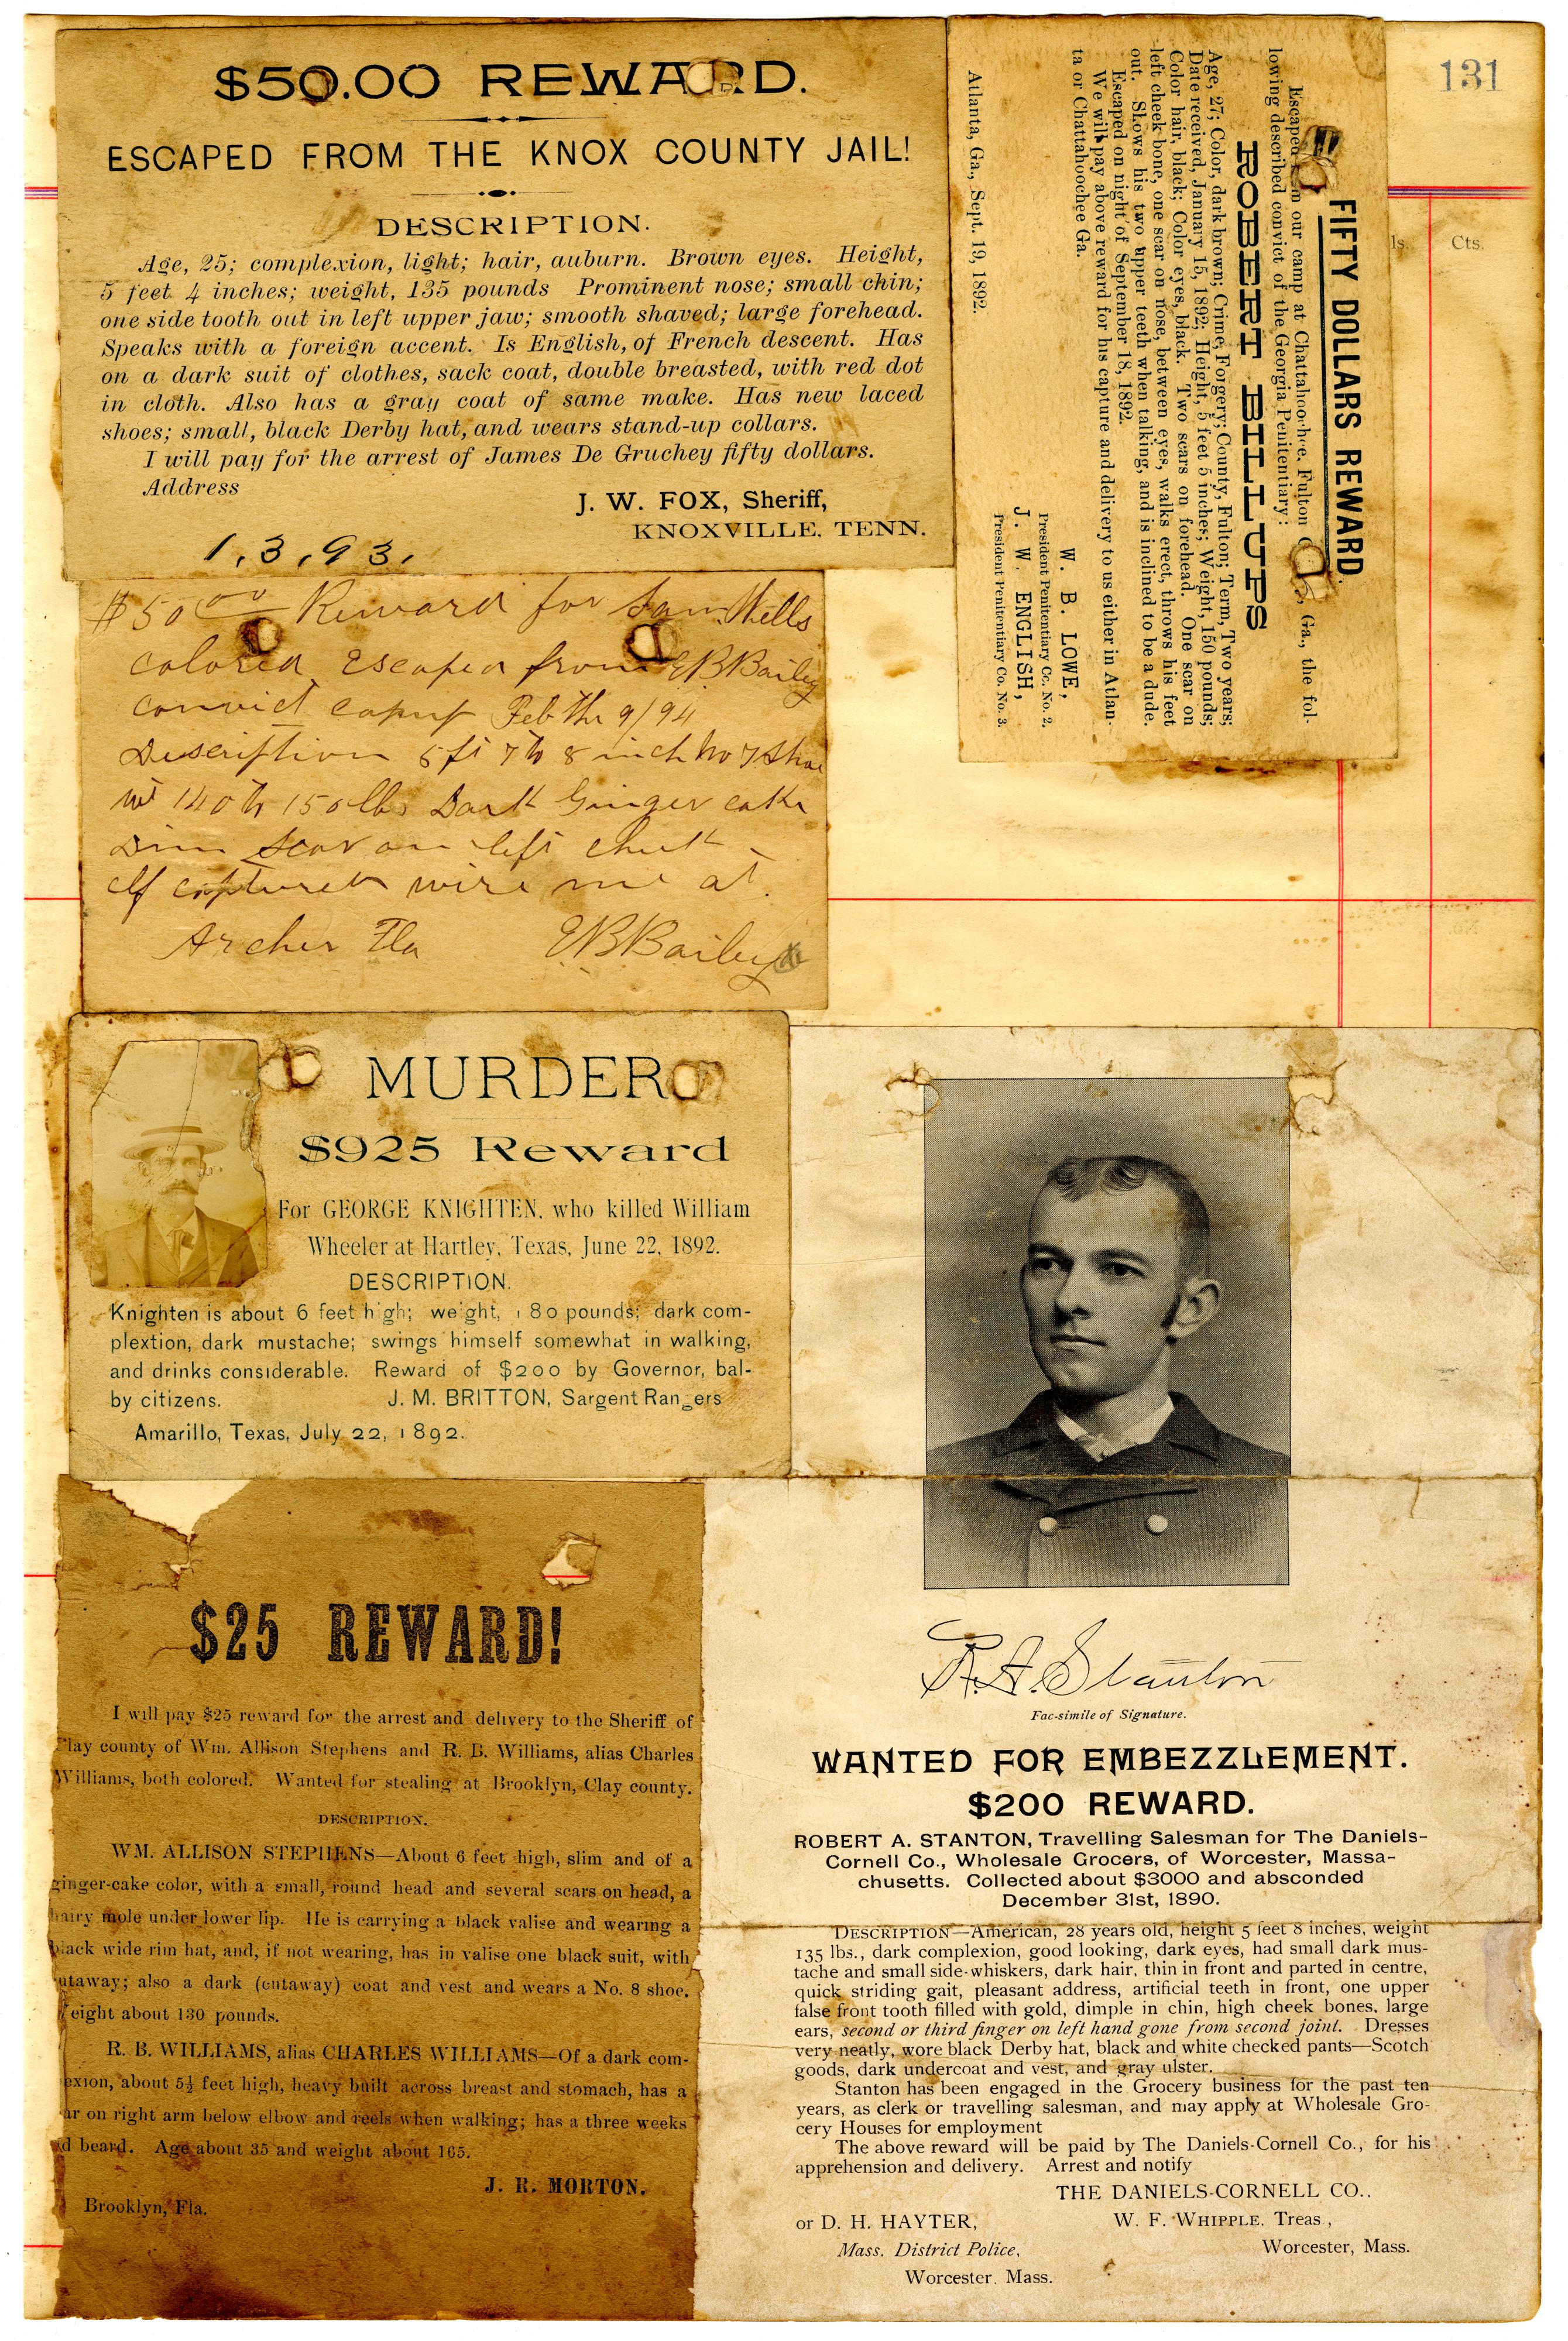 131
ls.
Cts.
$50.00 REWARD.
ESCAPED FROM THE KNOX COUNTY JAIL!
DESCRIPTION.
Age, 25; complexion, light; hair, auburn. Brown eyes. Height,
5 feet 4 inches; weight, 135 pounds Prominent nose; small chin;
one side tooth out in left upper jaw; smooth shaved; large forehead.
Speaks with a foreign accent. Is English, of French descent. Has
on a dark suit of clothes, sack coat, double breasted, with red dot
in cloth. Also has a gray coat of same make. Has new laced
shoes; small, black Derby hat, and wears stand-up collars.
I will pay for the arrest of James De Gruchey fifty dollars.
Address
J. W. FOX, Sheriff,
KNOXVILLE, TENN.
1,3,93,
FIFTY DOLLARS REWARD.
Escaped our camp at Chattahoochee, Fulton Ga., the fol-
lowing described convict of the Georgia Penitentiary:
ROBERT BILLUPS
Age, 27; Color, dark brown; Crime, Forgery; County, Fulton; Term, Two years;
Date received, January 15, 1892; Height, 5 feet 5 inches; Weight, 150 pounds;
Color hair, black; Color eyes, black. Two scars on forehead. One scar on
left cheek bone, one scar on nose, between eyes, walks erect, throws his feet
out. Shows his two upper teeth when talking, and is inclined to be a dude.
Escaped on night of September 18, 1892.
We will pay above reward for his capture and delivery to us either in Atlan-
ta or Chattahoochee Ga.
W. B. LOWE,
President Penitentiary Co. No. 2.
J. W. ENGLISH,
President Penitentiary Co. No. 3.
Atlanta, Ga., Sept. 19, 1892.
$50 00 Reward for Sam Wells
colored Escaped from EB Bailey
convict camp Feb the 9/94
Description 5 ft 7 to 8 inch No 7 Shoe
wt 140 to 150 lbs Dark Ginger cake
Dim Scar on left cheek
If captured wire me at
Archer Fla EB Bailey
MURDER
$925 Reward
For GEORGE KNIGHTEN, who killed William
Wheeler at Hartley, Texas, June 22, 1892.
DESCRIPTION.
Knighten is about 6 feet high; weight, 180 pounds; dark com-
plextion, dark mustache; swings himself somewhat in walking,
and drinks considerable. Reward of $200 by Governor, bal-
by citizens. J. M. BRITTON, Sargent Rangers
Amarillo, Texas, July 22, 1892.
$25 REWARD!
I will pay $25 reward for the arrest and delivery to the Sheriff of
Clay county of Wm. Allison Stephens and R. B. Williams, alias Charles
Williams, both colored. Wanted for stealing at Brooklyn, Clay county.
DESCRIPTION.
WM. ALLISON STEPHENS—About 6 feet high, slim and of a
ginger-cake color, with a small, round head and several scars on head, a
hairy mole under lower lip. He is carrying a black valise and wearing a
black wide rim hat, and, if not wearing, has in valise one black suit, with
cutaway; also a dark (cutaway) coat and vest and wears a No. 8 shoe.
Weight about 130 pounds.
R. B. WILLIAMS, alias CHARLES WILLIAMS—Of a dark com-
plexion, about 5½ feet high, heavy built across breast and stomach, has a
scar on right arm below elbow and reels when walking; has a three weeks
old beard. Age about 35 and weight about 165.
J. R. MORTON.
Brooklyn, Fla.
R. A. Stanton
Fac-simile of Signature.
WANTED FOR EMBEZZLEMENT.
$200 REWARD.
ROBERT A. STANTON, Travelling Salesman for The Daniels-
Cornell Co., Wholesale Grocers, of Worcester, Massa-
chusetts. Collected about $3000 and absconded
December 31st, 1890.
DESCRIPTION—American, 28 years old, height 5 feet 8 inches, weight
135 lbs., dark complexion, good looking, dark eyes, had small dark mus-
tache and small side-whiskers, dark hair, thin in front and parted in centre,
quick striding gait, pleasant address, artificial teeth in front, one upper
false front tooth filled with gold, dimple in chin, high cheek bones, large
ears, second or third finger on left hand gone from second joint. Dresses
very neatly, wore black Derby hat, black and white checked pants—Scotch
goods, dark undercoat and vest, and gray ulster.
Stanton has been engaged in the Grocery business for the past ten
years, as clerk or travelling salesman, and may apply at Wholesale Gro-
cery Houses for employment
The above reward will be paid by The Daniels-Cornell Co., for his
apprehension and delivery. Arrest and notify
THE DANIELS-CORNELL CO.,
or D. H. HAYTER, W. F. WHIPPLE, Treas.,
Mass. District Police, Worcester, Mass.
Worcester, Mass.